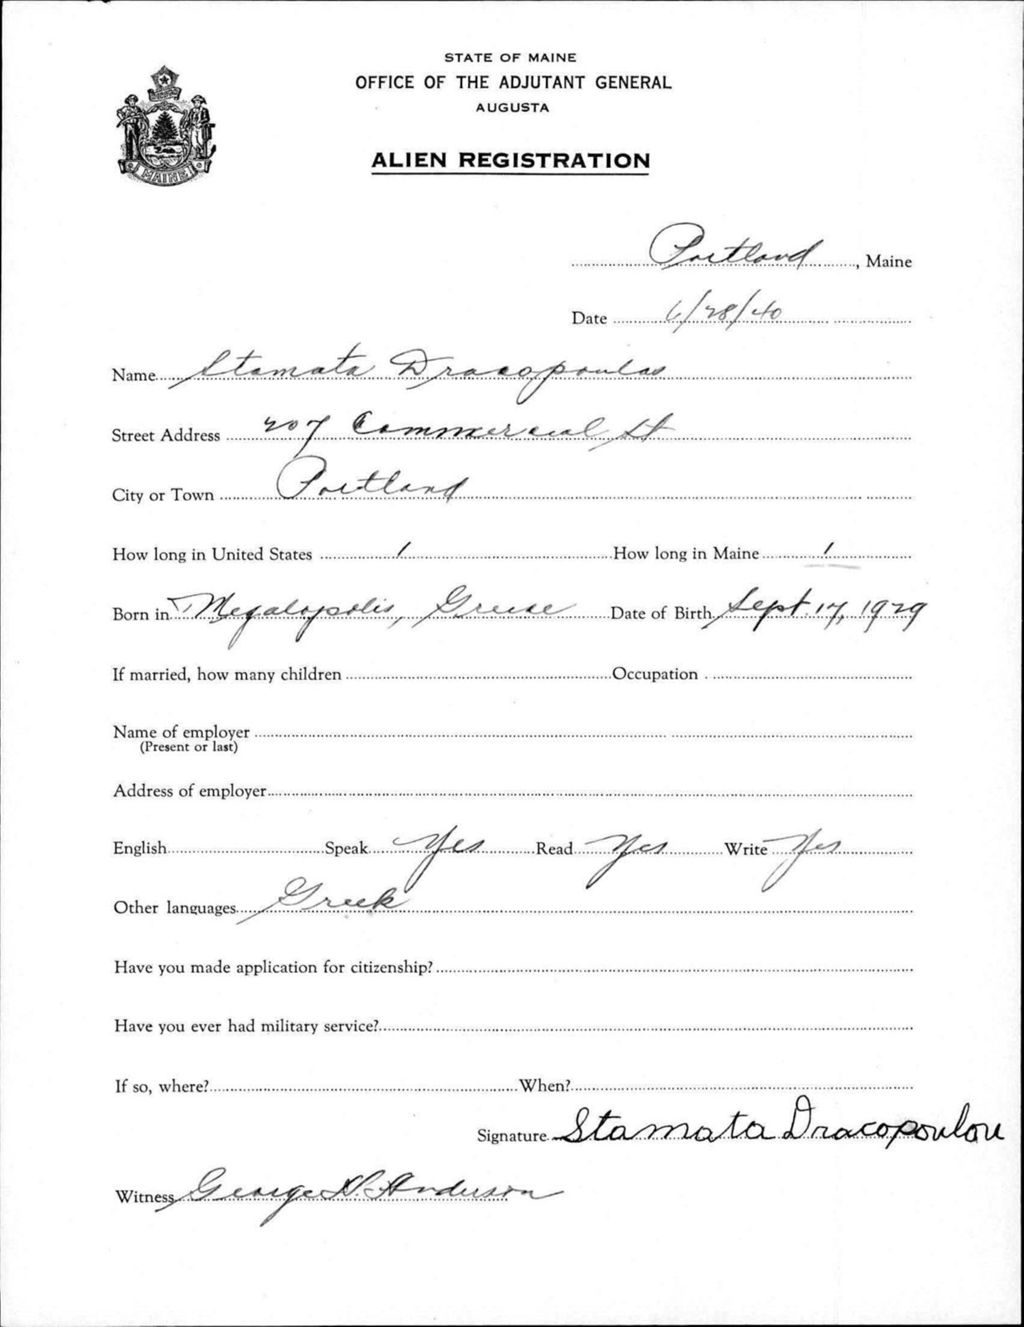 STATE OF MAINE
OFFICE OF THE ADJUTANT GENERAL
AUGUSTA
ALIEN REGISTRATION
MAINE
Portland, Maine
Date 6/28/40
Name Stamata Dracopoulos
Street Address 207 Commercial St
City or Town Portland
How long in United States 1 How long in Maine 1
Born in Megalopolis, Greece Date of Birth Sept. 17, 1929
If married, how many children Occupation
Name of employer
(Present or last)
Address of employer
English Speak Yes Read Yes Write Yes
Other languages Greek
Have you made application for citizenship?
Have you ever had military service?
If so, where? When?
Signature Stamata Dracopoulou
Witness George N. Anderson